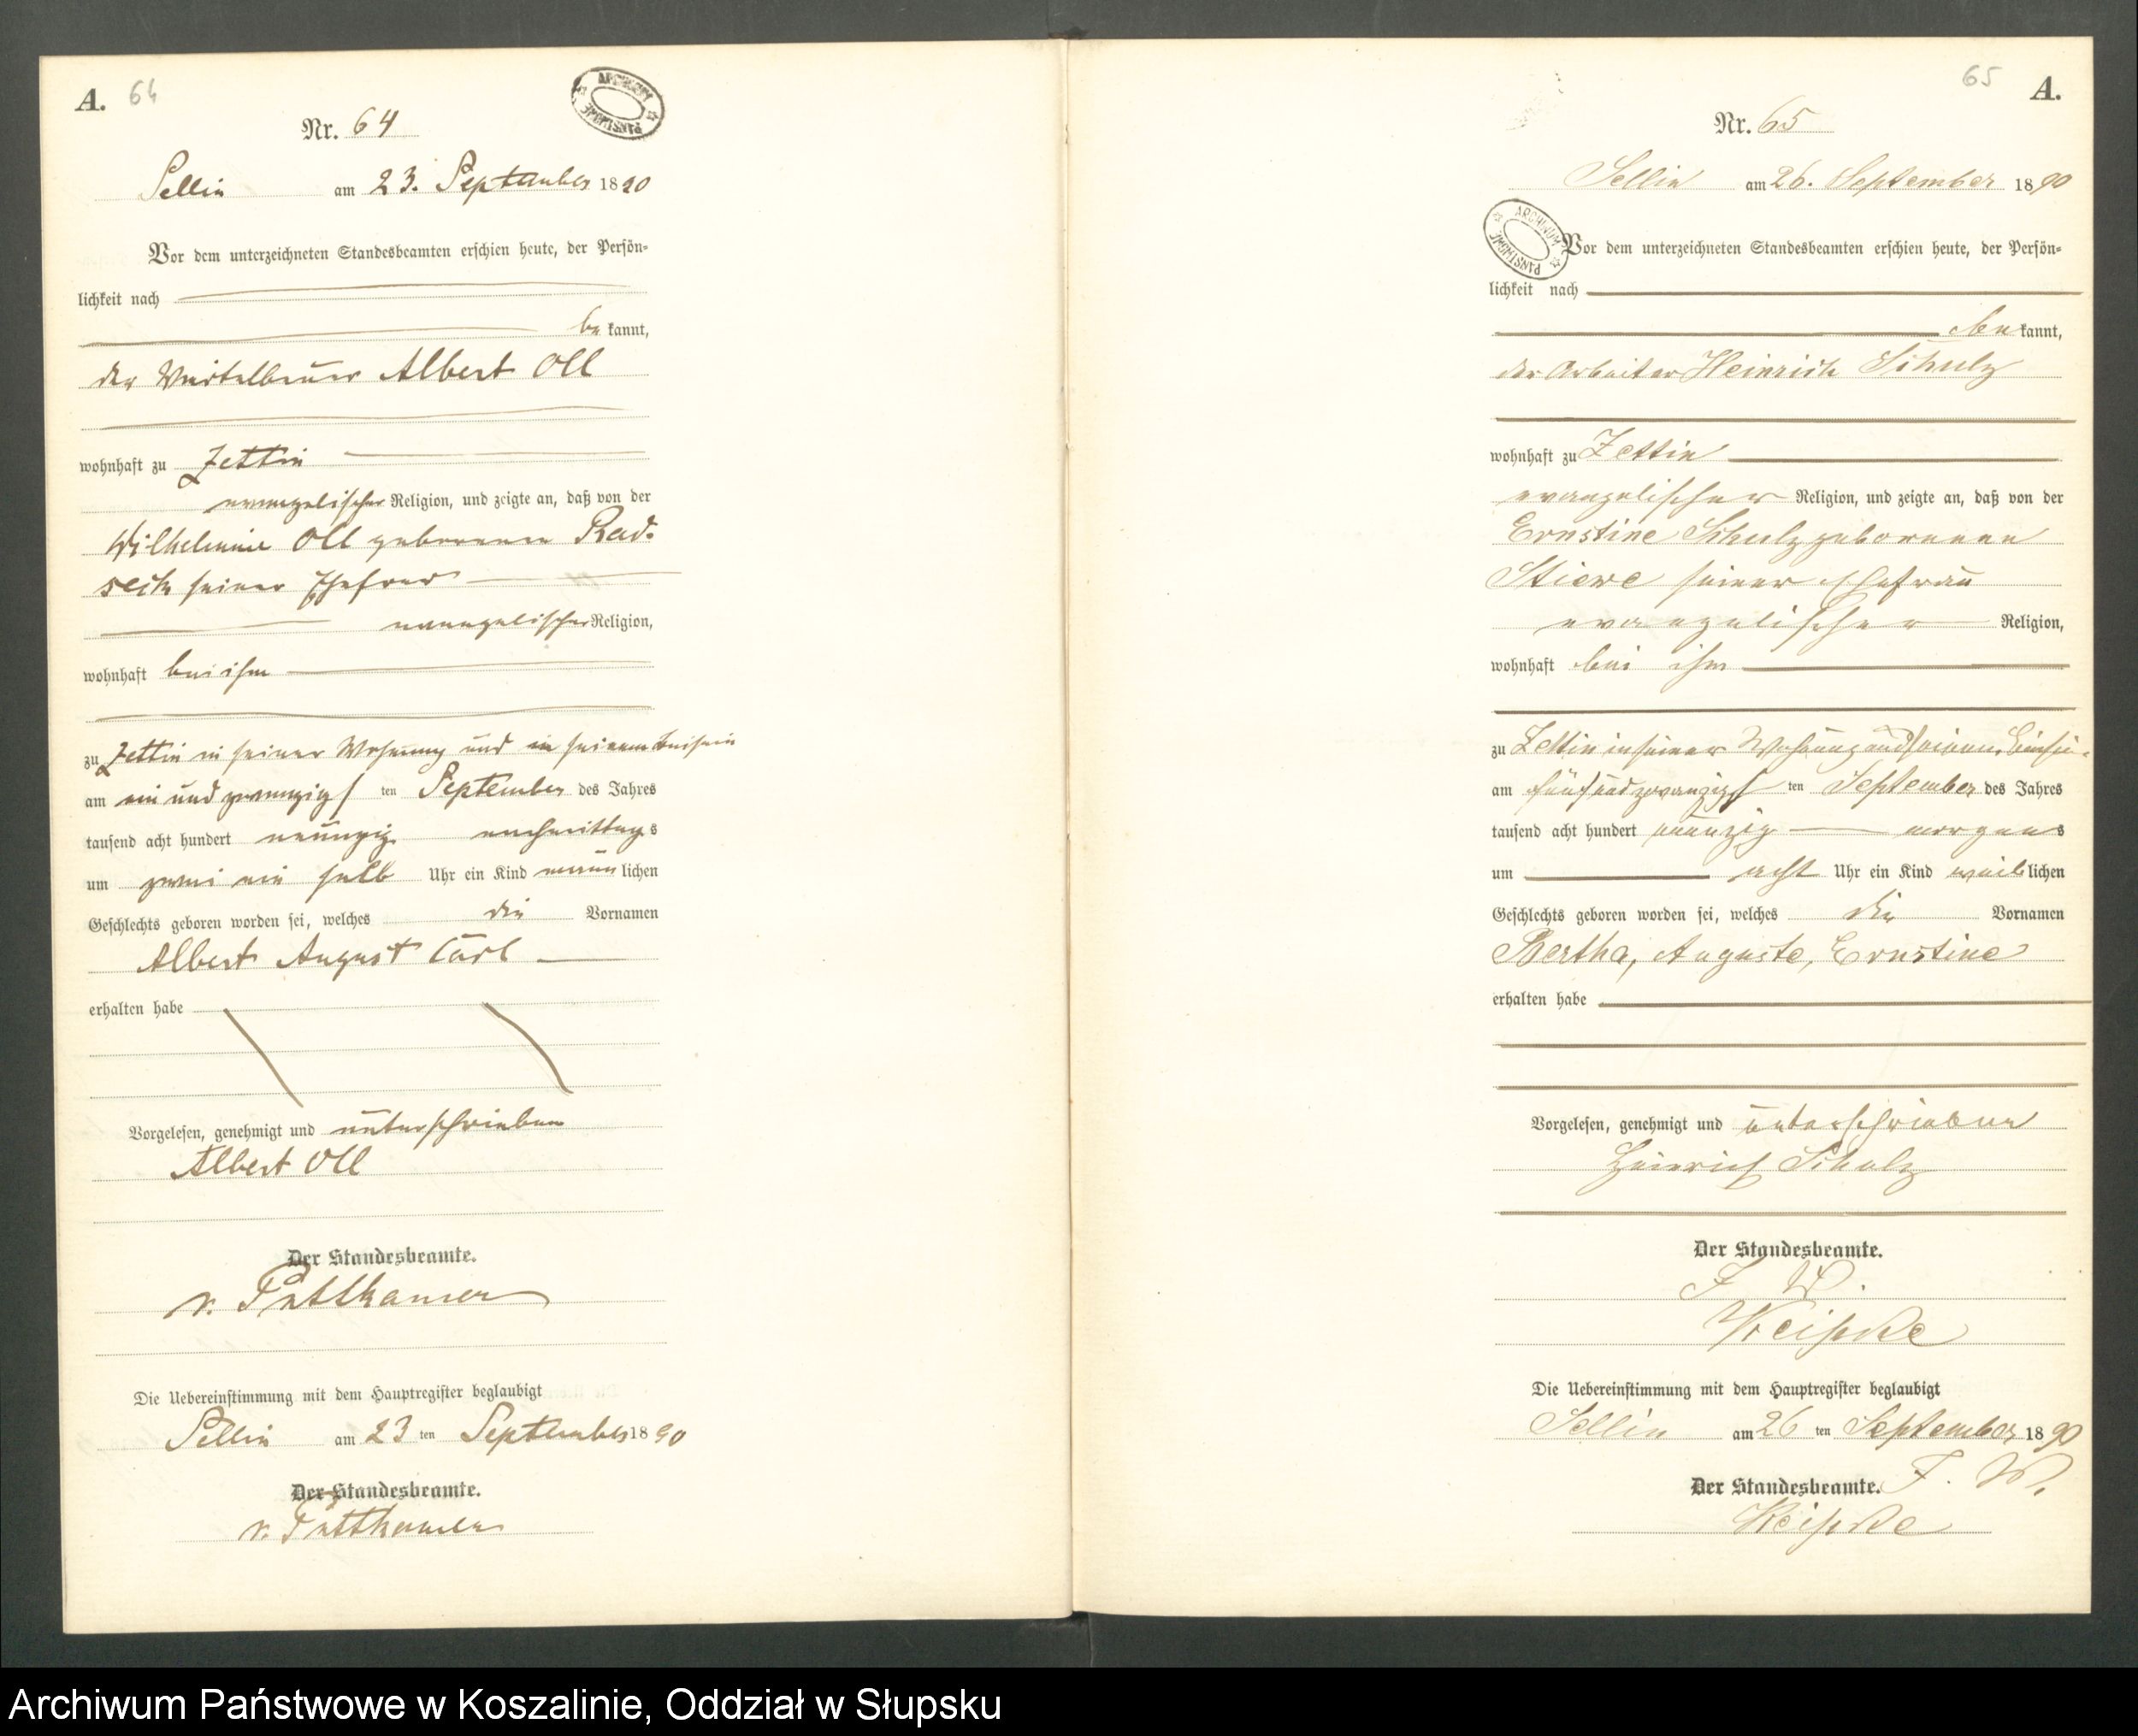 A. 64
ARCHIWUM PAŃSTWOWE
Nr. 64
Sellin am 23. September 1890
Vor dem unterzeichneten Standesbeamten erschien heute, der Persön-
lichkeit nach
be kannt,
der Viertelbauer Albert Oll
wohnhaft zu Zettin
evangelischer Religion, und zeigte an, daß von der
Wilhelmine Oll geborenen Rad-
seck seiner Ehefrau
evangelischer Religion,
wohnhaft bei ihm
zu Zettin in seiner Wohnung und in seinem Beisein
am ein und zwanzigs ten September des Jahres
tausend acht hundert neunzig nachmittags
um zwei ein halb Uhr ein Kind männ lichen
Geschlechts geboren worden sei, welches die Vornamen
Albert August Carl
erhalten habe
Vorgelesen, genehmigt und unterschrieben
Albert Oll
Der Standesbeamte.
v. Puttkamer
Die Uebereinstimmung mit dem Hauptregister beglaubigt
Sellin am 23 ten September 1890
Der Standesbeamte.
v. Puttkamer
65 A.
Nr. 65
Sellin am 26. September 1890
ARCHIWUM PAŃSTWOWE
Vor dem unterzeichneten Standesbeamten erschien heute, der Persön-
lichkeit nach
be kannt,
der Arbeiter Heinrich Schulz
wohnhaft zu Zettin
evangelischer Religion, und zeigte an, daß von der
Ernstine Schulz geborenen
Stiewe seiner Ehefrau
evangelischer Religion,
wohnhaft bei ihm
zu Zettin in seiner Wohnung und seinem
am fünfundzwanzigs ten September des Jahres
tausend acht hundert neunzig morgens
um acht Uhr ein Kind weib lichen
Geschlechts geboren worden sei, welches die Vornamen
Bertha, Auguste, Ernstine
erhalten habe
Vorgelesen, genehmigt und unterschrieben
Heinrich Schulz
Der Standesbeamte.
Die Uebereinstimmung mit dem Hauptregister beglaubigt
Sellin am 26 ten September 1890
Der Standesbeamte.
Archiwum Państwowe w Koszalinie, Oddział w Słupsku